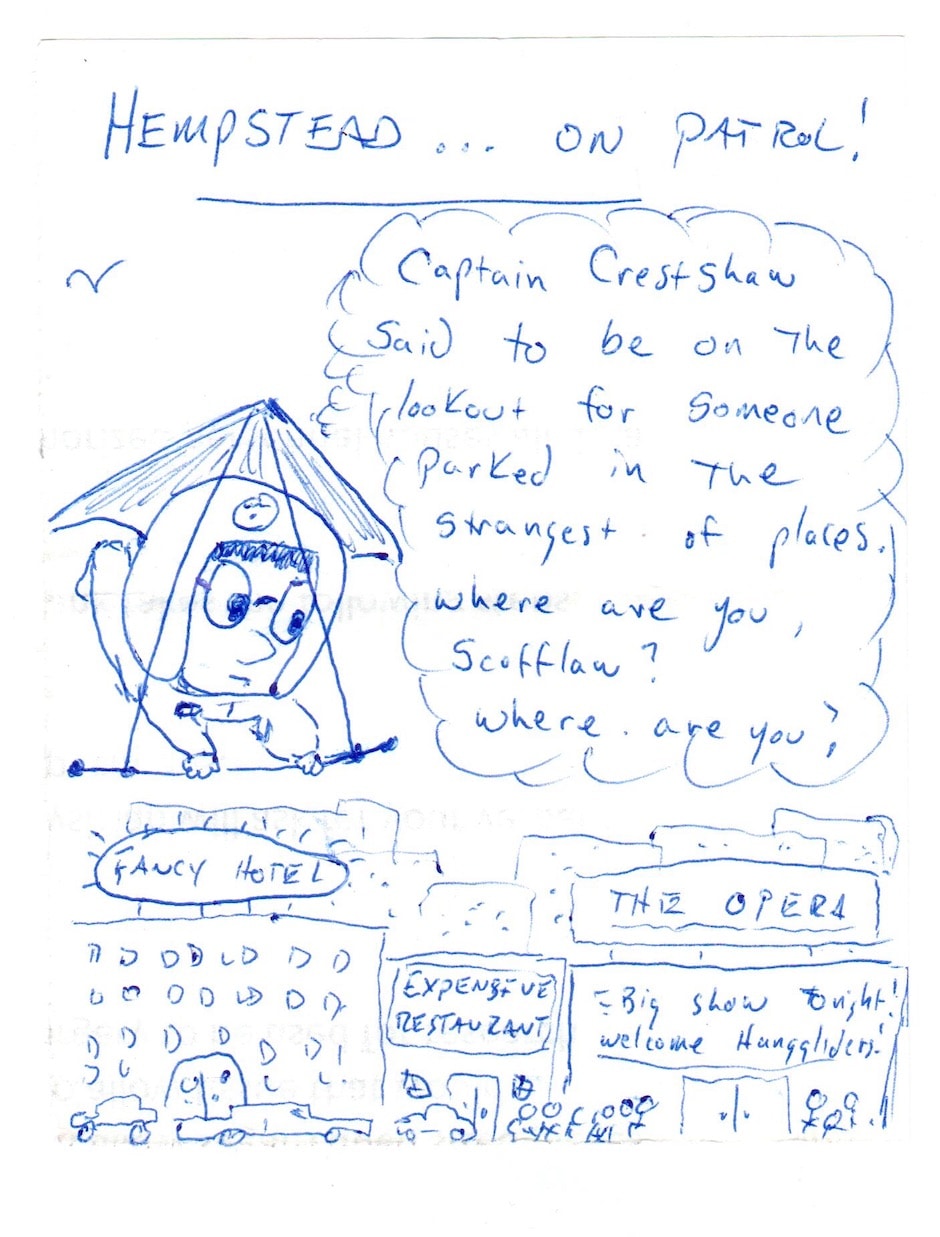 HEMPSTEAD ... ON PATROL!
Captain Crestshaw
Said to be on The
lookout for Someone
parked in The
Strangest of places.
where are you,
Scofflaw?
where are you?
FANCY HOTEL
THE OPERA
EXPENSIVE
RESTAURANT
Big show Tonight!
welcome Hanggliders!